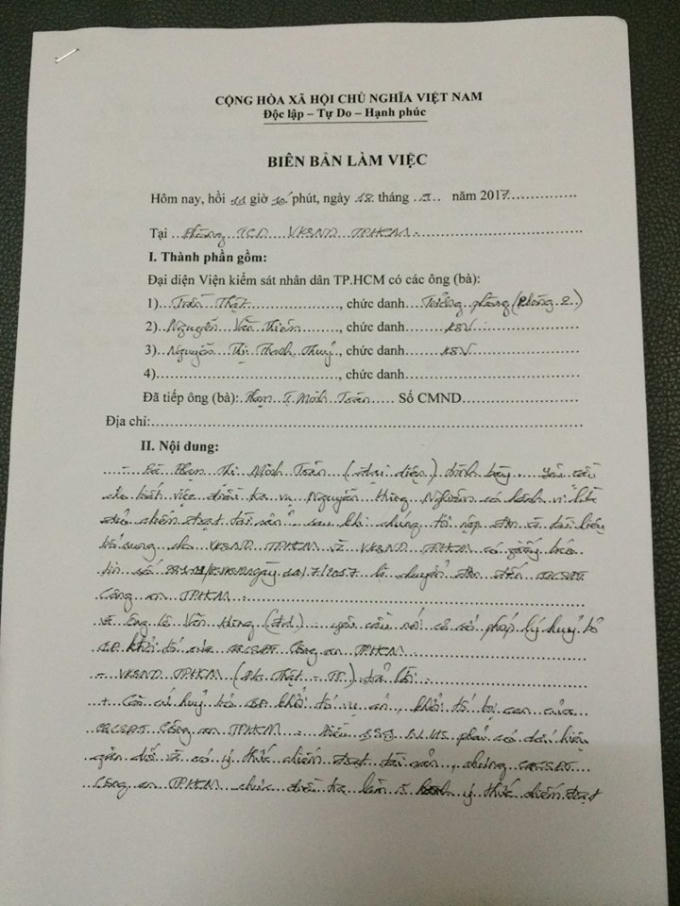 CỘNG HÒA XÃ HỘI CHỦ NGHĨA VIỆT NAM
Độc lập – Tự Do – Hạnh phúc
BIÊN BẢN LÀM VIỆC
Hôm nay, hồi giờ phút, ngày 18 tháng năm 2017
Tại Phòng TCD VKSND TPHCM.
I. Thành phần gồm:
Đại diện Viện kiểm sát nhân dân TP.HCM có các ông (bà):
1) Trần Thật, chức danh Trưởng phòng (Phòng 2.)
2) Nguyễn Văn, chức danh KSV
3) Nguyễn Thị Thạch Thuý, chức danh KSV
4), chức danh
Đã tiếp ông (bà): Phan T. Minh Trân. Số CMND
Địa chỉ:
II. Nội dung:
- Bà Phan Thị Minh Trân (đại diện) trình bày. Yêu cầu
cho biết việc điều tra vụ Nguyễn Hùng có hành vi lừa
đảo chiếm đoạt tài sản" sau khi chúng tôi nộp đơn và tài liệu
bổ sung cho VKSND TPHCM và VKSND TPHCM có giấy báo
tin số ngày 11/7/2017 là chuyển đơn đến
Công an TPHCM.
và ông Lê Văn Hùng yêu cầu nói cơ sở pháp lý huỷ bỏ
khởi tố của Công an TPHCM.
- VKSND TPHCM (Thật - TP.) trả lời:
+ Căn cứ huỷ bỏ khởi tố vụ án, khởi tố bị can của
Công an TPHCM. Điều phải có dấu hiệu
gian dối và có ý thức chiếm đoạt tài sản, nhưng
Công an TPHCM chưa điều tra làm rõ ý thức chiếm đoạt